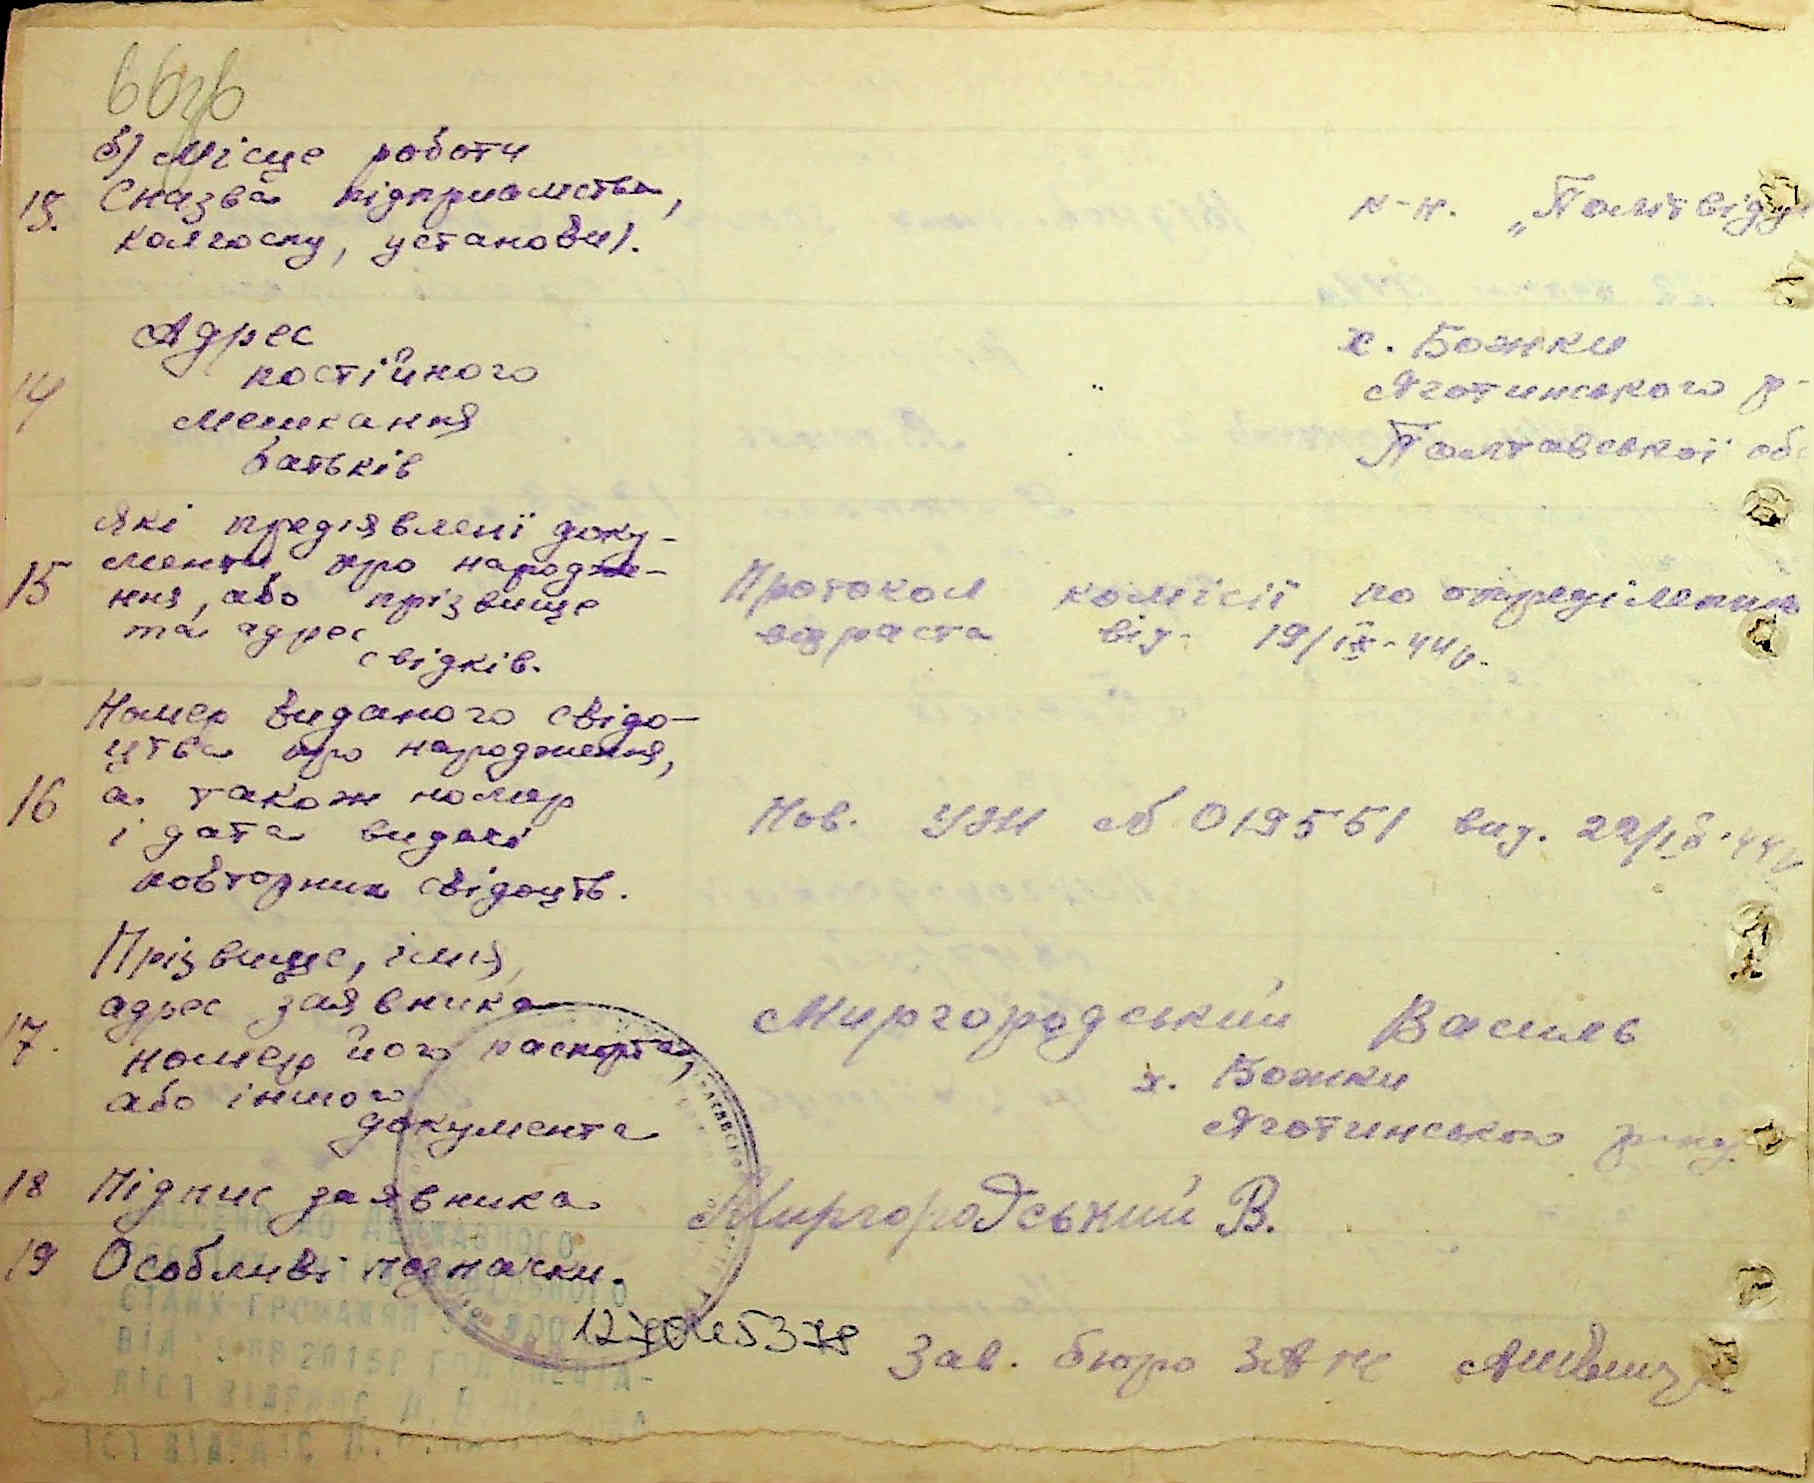 б) Місце роботи
13. (назва підприємства, к-п. „Політвідд
колгоспу, установи).
14 Адрес постійного мешкання батьків
х. Божки
Яготинського р-
Полтавської об
15 Які предіявлені доку-
менти про народже-
ння, або прізвище
та адрес
свідків.
Протокол комісії по определению
возраста від 19/IX-44р.
16 Номер виданого свідо-
цтва про народження,
а також номер
і дата видачі
повторних свідоцтв.
Нов. УЖ № 019551 вид. 22/IX-44р
17. Прізвище, імя,
адрес заявника
номер його паспорта,
або іншого
документа
Миргородський Василь
х. Божки
Яготинського р-ну
18 Підпис заявника Миргородський В.
19 Особливі позначки.
Зав. бюро ЗАГС